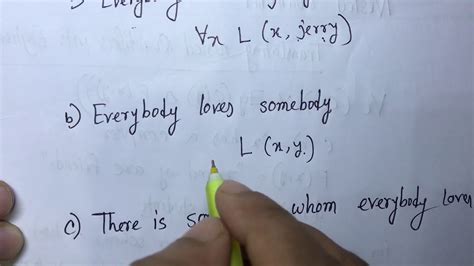 ∀x L (x, jerry)
b) Everybody loves somebody
L (x, y.)
c) There is whom everybody loves